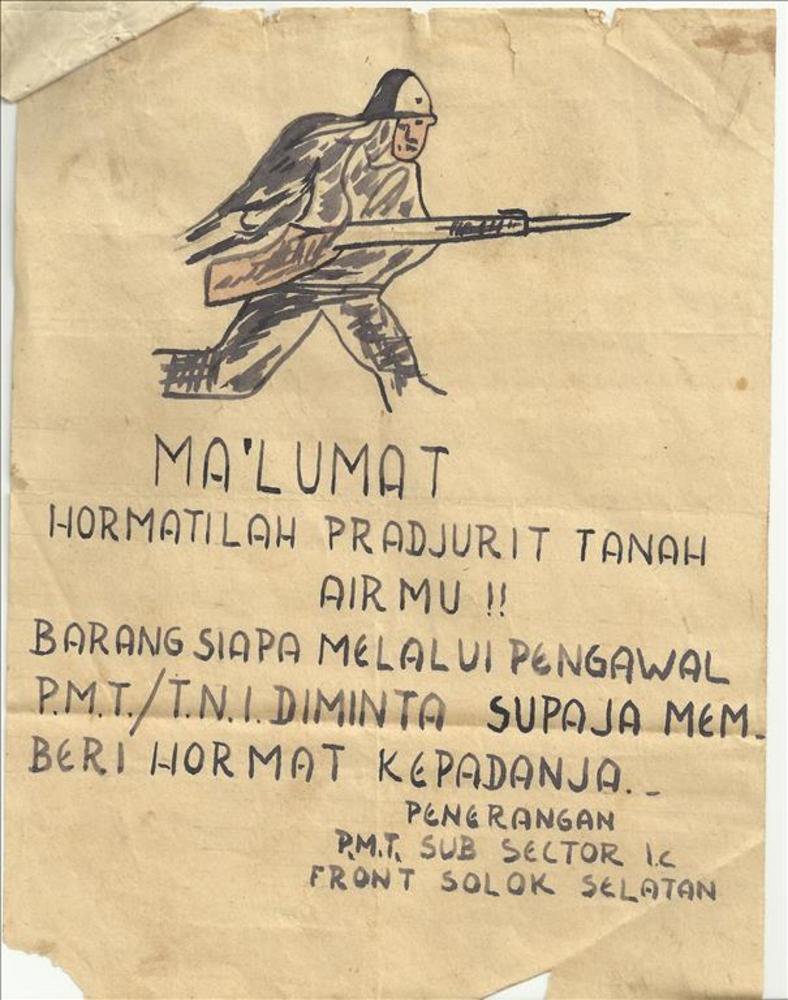 MA'LUMAT
HORMATILAH PRADJURIT TANAH
AIRMU !!
BARANG SIAPA MELALUI PENGAWAL
P.M.T./T.N.I. DIMINTA SUPAJA MEM-
BERI HORMAT KEPADANJA._
PENERANGAN
P.M.T. SUB SECTOR I.C
FRONT SOLOK SELATAN